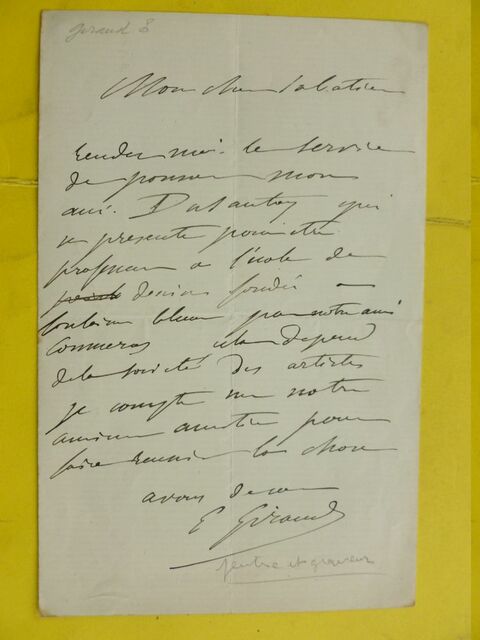 Giraud E
Mon cher Sabatier
rendez moi le service
de pousser mon
ami. Dalautoy qui
se presente pour être
professeur a l'école de
dessins fondée a
fontaine bleau par notre ami
Commeras cela depend
de la société des artistes
je compte sur notre
ancienne amitié pour
faire reussir la chose
a vous de cœur
E Giraud
peintre et graveur